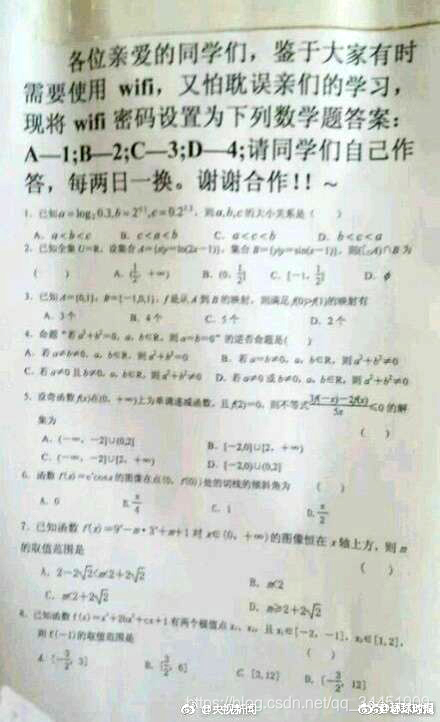 各位亲爱的同学们，鉴于大家有时
需要使用 wifi，又怕耽误亲们的学习，
现将 wifi 密码设置为下列数学题答案：
A—1;B—2;C—3;D—4;请同学们自己作
答，每两日一换。谢谢合作!! ~
1. 已知a=log₂0.3,b=2^0.1,c=0.2^1.3，则a,b,c的大小关系是（ ）
A. a<b<c B. c<a<b C. a<c<b D. b<c<a
2. 已知全集 U=R，设集合A={x|y=ln(2x−1)}，集合B={y|y=sin(x−1)}，则(∁ᵤA)∩B 为
（ ） A. (1/2, +∞) B. (0, 1/2] C. [−1, 1/2] D. ϕ
3. 已知A={0,1}，B={−1,0,1}，f是从A到B的映射，则满足f(0)>f(1)的映射有
A. 3个 B. 4个 C. 5个 D. 2个
4. 命题“若a²+b²=0，a，b∈R，则a=b=0”的逆否命题是( )
A. 若a≠b≠0，a，b∈R，则a²+b²=0 B. 若a=b≠0，a，b∈R，则a²+b²≠0
C. 若a≠0且b≠0，a，b∈R，则a²+b²≠0 D. 若a≠0或b≠0，a，b∈R，则a²+b²≠0
5. 设奇函数f(x)在(0，+∞)上为单调递减函数，且f(2)=0，则不等式 3f(−x)−2f(x)/5x ≤0 的解
集为 （ ）
A. (−∞，−2]∪(0,2] B. [−2,0]∪[2，+∞)
C. (−∞，−2]∪[2，+∞) D. [−2,0)∪(0,2]
6. 函数 f(x)=eˣcosx 的图像在点(0，f(0))处的切线的倾斜角为 （ ）
A. 0 B. π/4 C. 1 D. π/2
7. 已知函数 f(x)=9ˣ−m·3ˣ+m+1 对 x∈(0，+∞)的图像恒在 x 轴上方，则 m
的取值范围是 （ ）
A. 2−2√2<m<2+2√2 B. m<2
C. m<2+2√2 D. m≥2+2√2
8. 已知函数 f(x)=x³+2bx²+cx+1 有两个极值点 x₁，x₂，且 x₁∈[−2，−1]，x₂∈[1,2]，
则 f(−1)的取值范围是 （ ）
A. [−3/2, 3] B. [3/2, 6] C. [3,12] D. [−3/2, 12]
@央视新闻
https://blog.csdn.net/qq_34451909
@环球时报